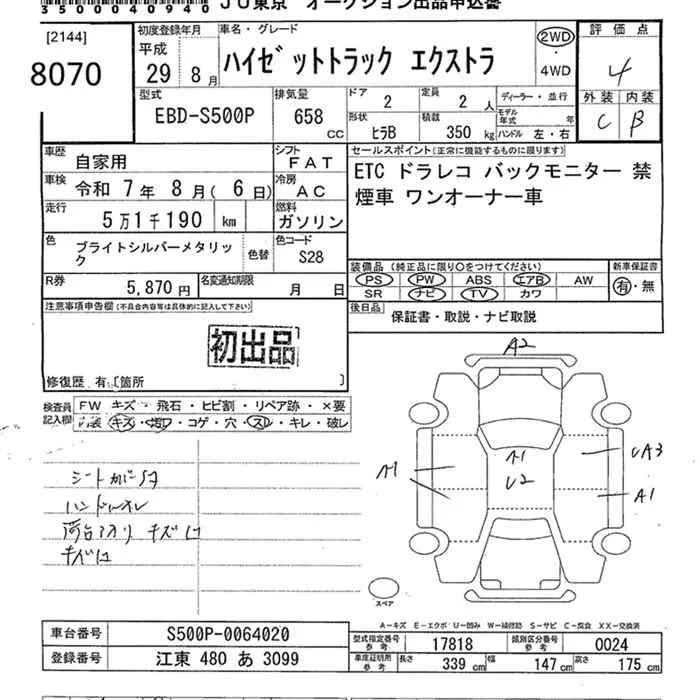 35000040940940 JU東京 オークション出品申込書
[2144]
8070
初度登録年月
平成
29年 8月
車名・グレード
ハイゼットトラック エクストラ
2WD
・
4WD
評価点
4
外装 内装
C B
型式
EBD-S500P
排気量
658
CC
ドア
2
定員
2 人
形状
ヒラB
積載
350 kg
ディーラー・並行
モデル年式 年
ハンドル 左・右
車歴
自家用
シフト
FAT
車検
令和 7年 8月( 6日)
冷房
AC
走行
5万1千190 km
燃料
ガソリン
色
ブライトシルバーメタリック
色替
色コード
S28
R券
5,870円
名変通知期限
月 日
セールスポイント(正常に機能するものに限ります)
ETC ドラレコ バックモニター 禁
煙車 ワンオーナー車
装備品 (純正品に限り○をつけてください)
PS PW ABS エアB AW
SR ナビ TV カワ
新車保証書
有・無
後日品
保証書・取説・ナビ取説
注意事項申告欄(不具合内容等は具体的に記入して下さい)
初出品
修復歴 有〔箇所 〕
検査員記入欄
FW キズ・飛石・ヒビ割・リペア跡・×要
内装 キズ・汚れ・コゲ・穴・スレ・キレ・破レ
シートカバー
ハンドルスレ
荷台アオリ キズ凹
キズ凹
A2
A1
U2
A1
UA3
A1
スペア
A-キズ E-エクボ U-凹み W-補修跡 S-サビ C-腐食 XX-交換済
車台番号
S500P-0064020
登録番号
江東 480 あ 3099
型式指定番号
参考
17818
類別区分番号
参考
0024
車庫証明用
参考
長さ
339 cm
幅
147 cm
高さ
175 cm